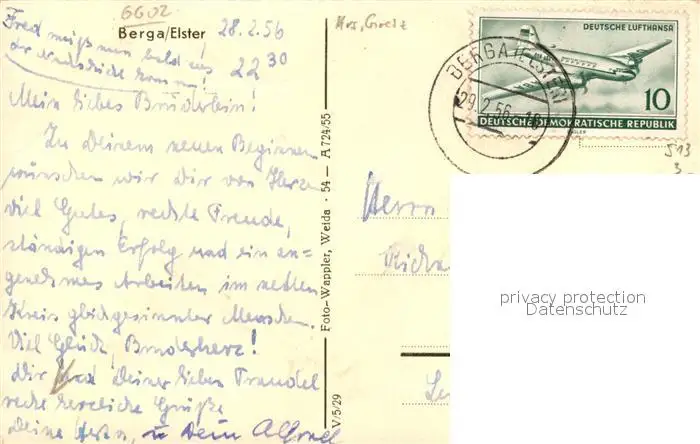 6602
Berga/Elster 28.2.56
22 30
Fred muß man bald
der
Mein liebes Brüderlein!
Zu Deinem neuen Beginnen
wünschen wir Dir von Herzen
viel Gutes, rechte Freude,
ständigen Erfolg und ein an=
genehmes Arbeiten im netten
Kreis gleichgesinnter Menschen.
Viel Glück, Bruderherz!
Dir und Deiner lieben Traudel
recht herzliche Grüße
Deine u. Dein Alfred
Foto-Wappler, Weida · 54 — A 724/55
V/5/29
DEUTSCHE LUFTHANSA
10
DEUTSCHE DEMOKRATISCHE REPUBLIK
BERGA (ELSTER)
29.2.56
513
3
Herrn
Richa
privacy protection
Datenschutz